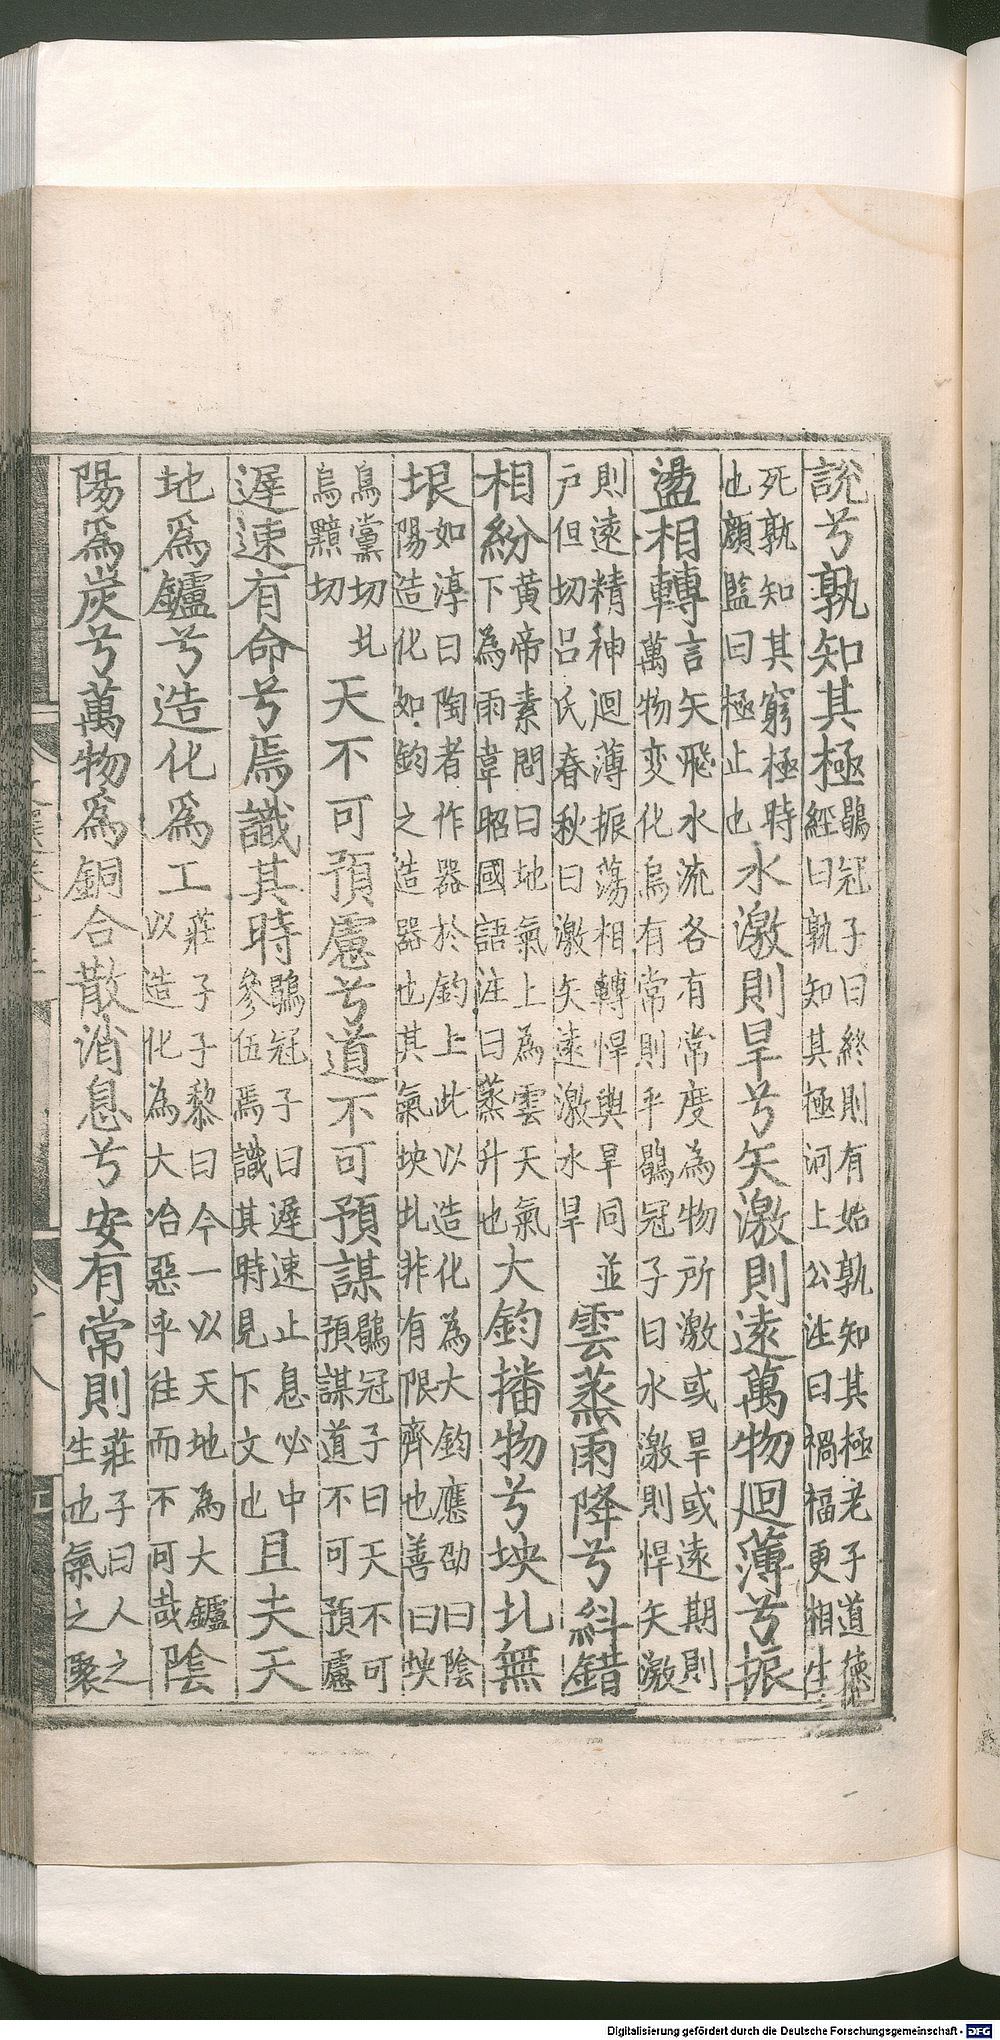 說兮孰知其極鶡冠子曰終則有始孰知其極老子道德
經曰孰知其極河上公注曰禍福更相生
死孰知其窮極時
也顏監曰極止也水激則旱兮矢激則遠萬物迴薄兮振
盪相轉言矢飛水流各有常度為物所激或旱或遠期則
萬物变化烏有常則乎鶡冠子曰水激則悍矢激
則遠精神迴薄振蕩相轉悍與旱同並
戶但切呂氏春秋曰激矢遠激水旱雲蒸雨降兮糾錯
相紛黃帝素問曰地氣上為雲天氣
下為雨韋昭國語注曰蒸升也大鈞播物兮坱圠無
垠如淳曰陶者作器於鈞上此以造化為大鈞應劭曰陰
陽造化如鈞之造器也其氣坱圠非有限齊也善曰坱
烏黨切圠
烏黠切天不可預慮兮道不可預謀鶡冠子曰天不可
預謀道不可預慮
遲速有命兮焉識其時鶡冠子曰遲速止息必中
參伍焉識其時見下文也且夫天
地爲鑪兮造化爲工莊子子黎曰今一以天地為大鑪
以造化為大冶惡乎往而不可哉陰
陽爲炭兮萬物爲銅合散消息兮安有常則莊子曰人之
生也氣之聚
Digitalisierung gefördert durch die Deutsche Forschungsgemeinschaft - DFG